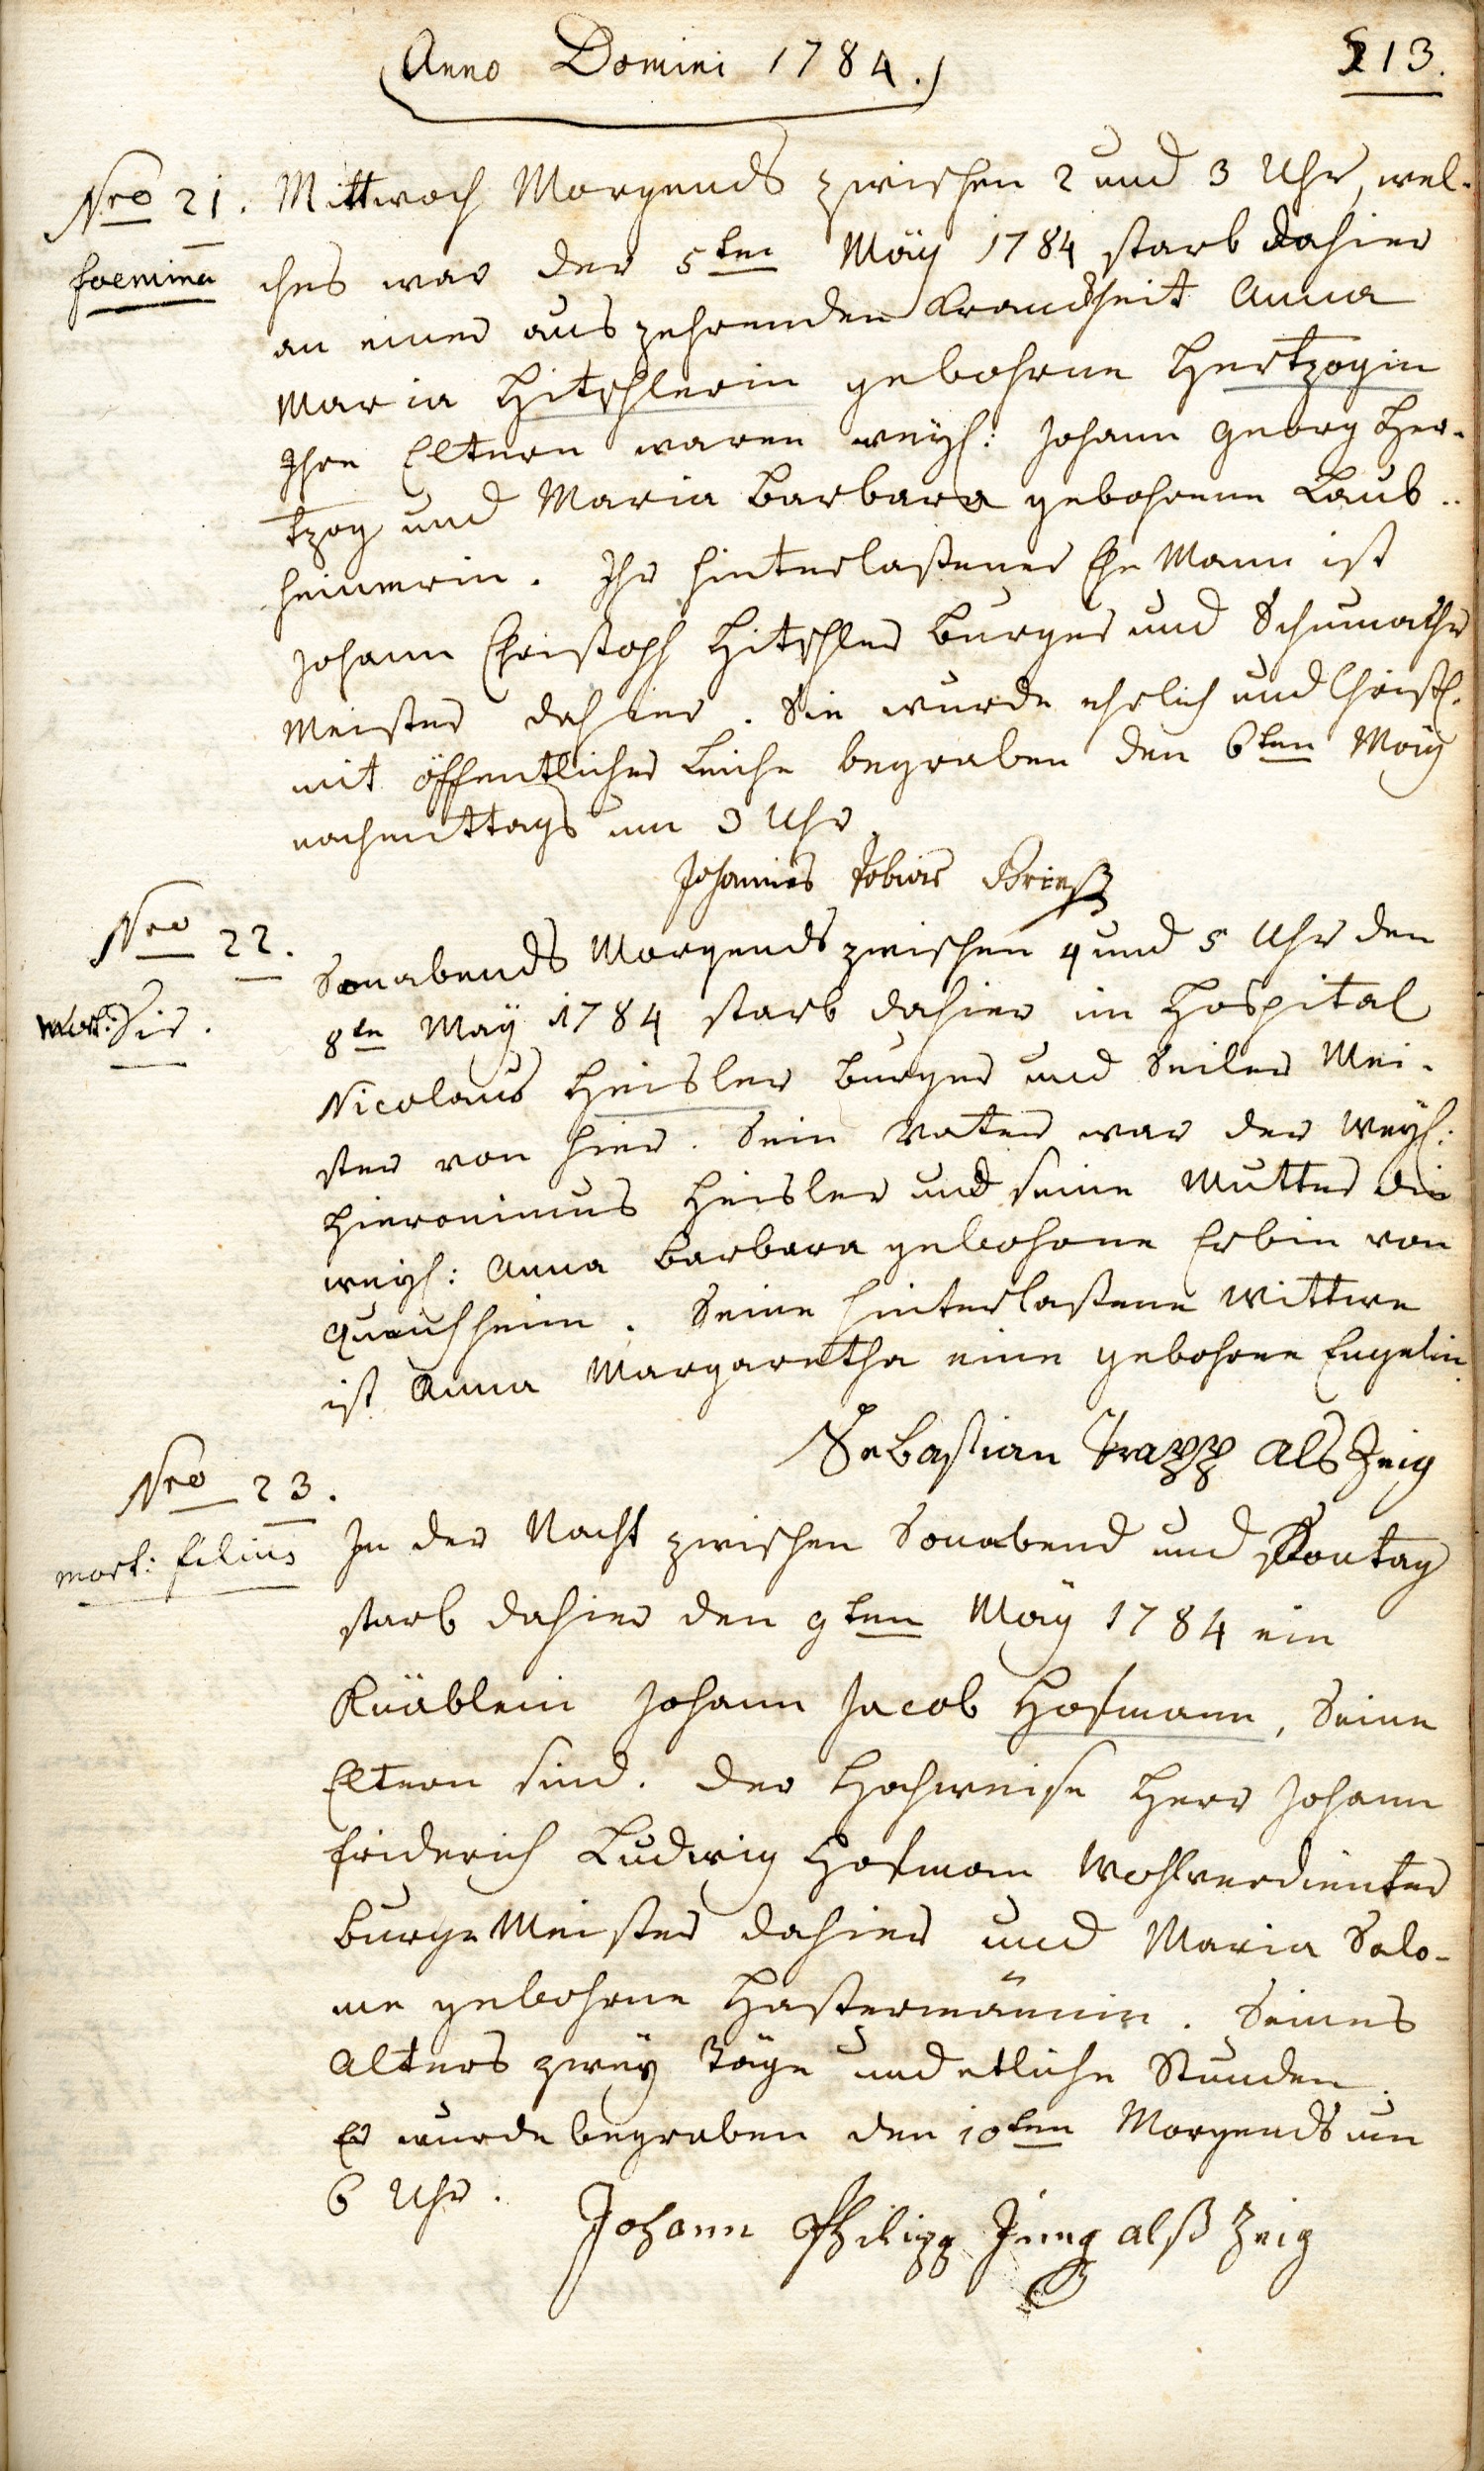 Anno Domini 1784.
213.
Nro 21.
foemina
Mittwoch Morgends zwischen 2 und 3 Uhr, wel-
ches war der 5ten Mäy 1784 starb dahier
an einer auszehrenden Kranckheit Anna
Maria Hitschlerin gebohrne Hertzogin
Ihre Eltern waren weyl: Johann Georg Her-
tzog und Maria Barbara gebohrene Laub-
heimerin. Ihr hinterlaßener Ehe Mann ist
Johann Christoph Hitschler Burger und Schumacher
Meister dahier. Sie wurde ehrlich und Christl.
mit öffentlicher Leiche begraben den 6ten Mäy
nachmittags um 3 Uhr
Johannes Tobias Brieß
Nro 22.
mort: Vir.
Sonabends Morgends zwischen 4 und 5 Uhr den
8ten May 1784 starb dahier im Hospital
Nicolaus Heisler Burger und Seiler Mei-
ster von hier. Sein Vater war der Weyl:
Hieronimus Heisler und seine Mutter die
weyl: Anna Barbara gebohrne Erbin von
Queichheim. Seine hinterlaßene Wittwe
ist Anna Margaretha eine gebohrne Engelin.
Sebastian Trapp als Zeig
Nro 23.
mort: filius
In der Nacht zwischen Sonabend und Sontag
starb dahier den 9ten Mäy 1784 ein
Knäblein Johann Jacob Hofmann, Seine
Eltern sind. der Hochweise Herr Johann
Friderich Ludwig Hofmann Wohlverdienter
Burge Meister dahier und Maria Salo-
me gebohrne Hastermännin. Seines
Alters zwey Täge und etliche Stunden.
Er wurde begraben den 10ten Morgends um
6 Uhr.
Johann Philipp Jung alß Zeig